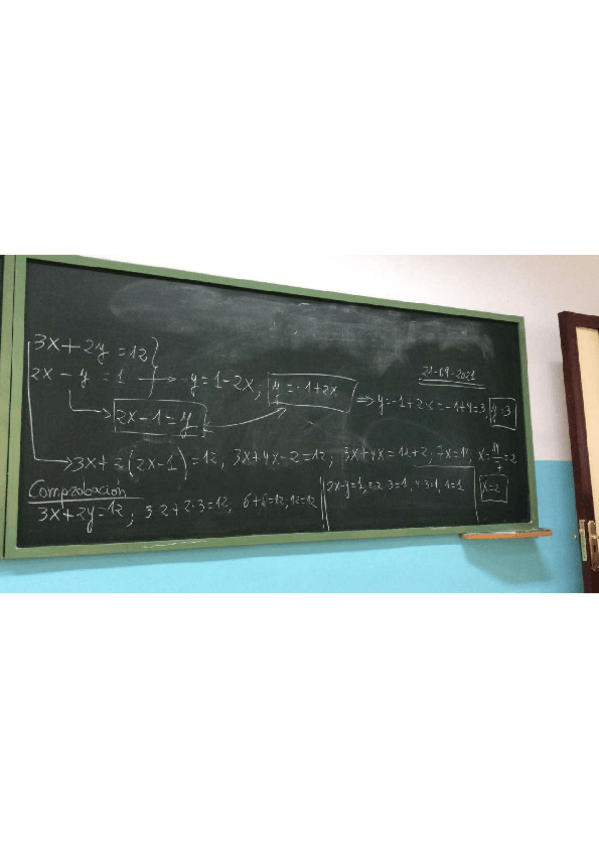 3x + 2y = 12
21-09-2021
2x - y = 1 → -y = 1-2x; y = -1+2x ⇒ y = -1+2·2 = -1+4 = 3; y = 3
2x-1 = y
3x + 2(2x-1) = 12, 3x+4x-2 = 12; 3x+4x = 12+2; 7x = 14; x = 14/7 = 2
Comprobación
3x+2y = 12; 3·2+2·3 = 12, 6+6 = 12, 12 = 12
2x-y = 1, 4-3=1, 1 = 1
x = 2